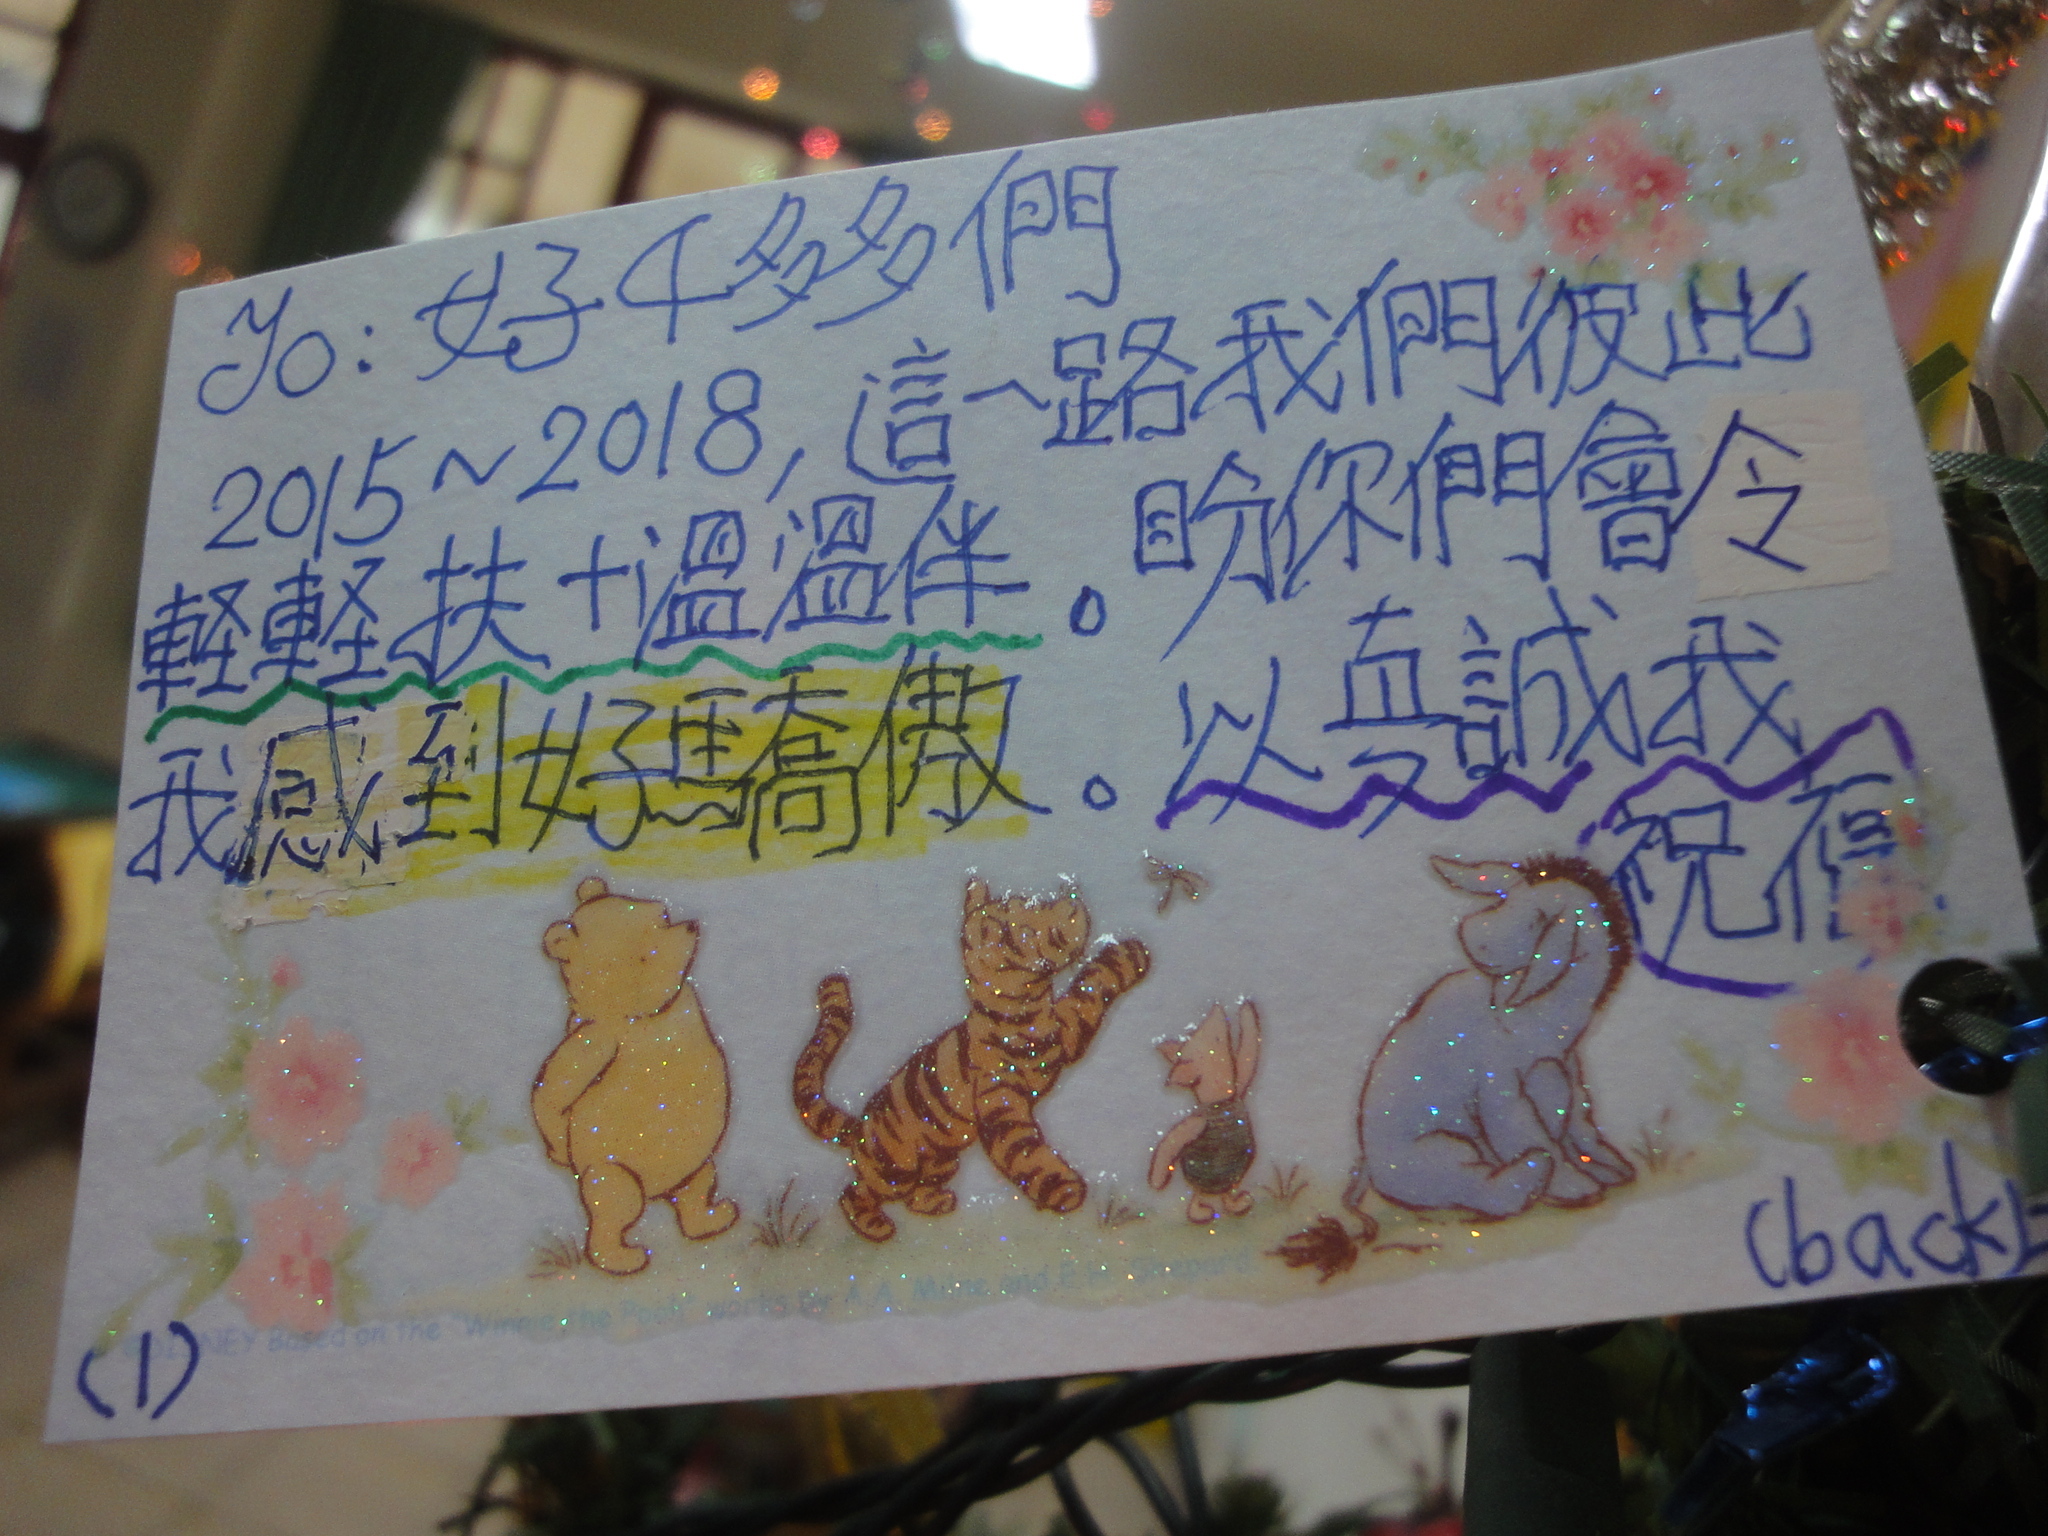 To: 好多多們
2015~2018, 這一路我們彼此
軽軽扶+溫溫伴。盼你們會令
我感到好驕傲。以真誠我
祝福
(back)
©DISNEY Based on the "Winnie the Pooh" works by A.A. Milne and E.H. Shepard.
(1)